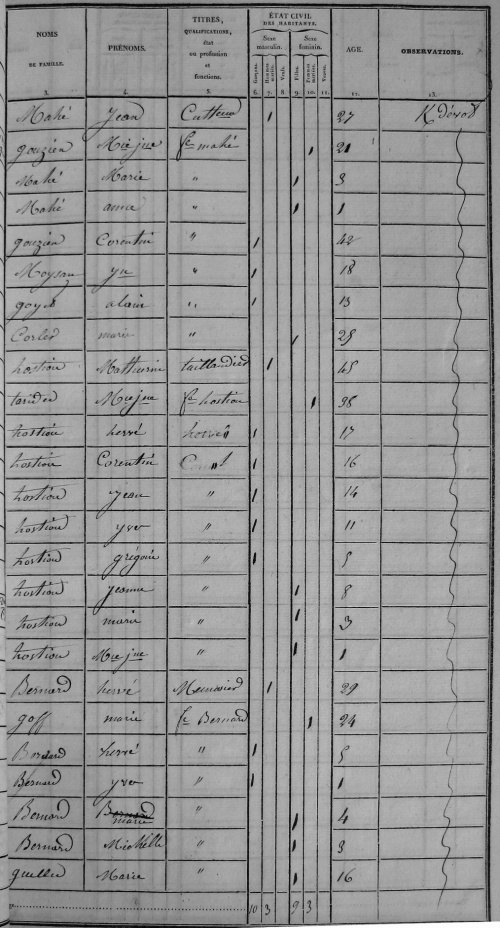 NOMS DE FAMILLE. PRÉNOMS. TITRES, QUALIFICATIONS, état ou profession et fonctions. ÉTAT CIVIL DES HABITANTS. Sexe masculin. Sexe féminin. AGE. OBSERVATIONS.
Garçons. Hommes mariés. Veufs. Filles. Femmes mariées. Veuves.
3. 4. 5. 6. 7. 8. 9. 10. 11. 12. 13.
Mahé Jean Cultteur 1 27
gouzien Mie jne fe mahé 1 21
Mahé Marie " 1 3
Mahé anna " 1 1
gouzien Corentin " 1 42
Moysan yn " 1 18
goyat alain " 1 13
Corler marie " 1 25
hostiou Mathurin taillandier 1 45
Mie jne fe hostiou 1 38
hostiou hervé 1 17
hostiou Corentin 1 16
hostiou jean " 1 14
hostiou yves " 1 11
hostiou grégoire 1 5
hostiou jeanne " 1 8
hostiou marie " 1 3
hostiou Mie jne " 1 1
Bernard hervé Meunier 1 29
goff marie fe Bernard 1 24
Bernard hervé " 1 5
Bernard yves " 1 1
Bernard marie " 1 4
Bernard Michelle " 1 3
quellec Marie " 1 16
10 3 9 3